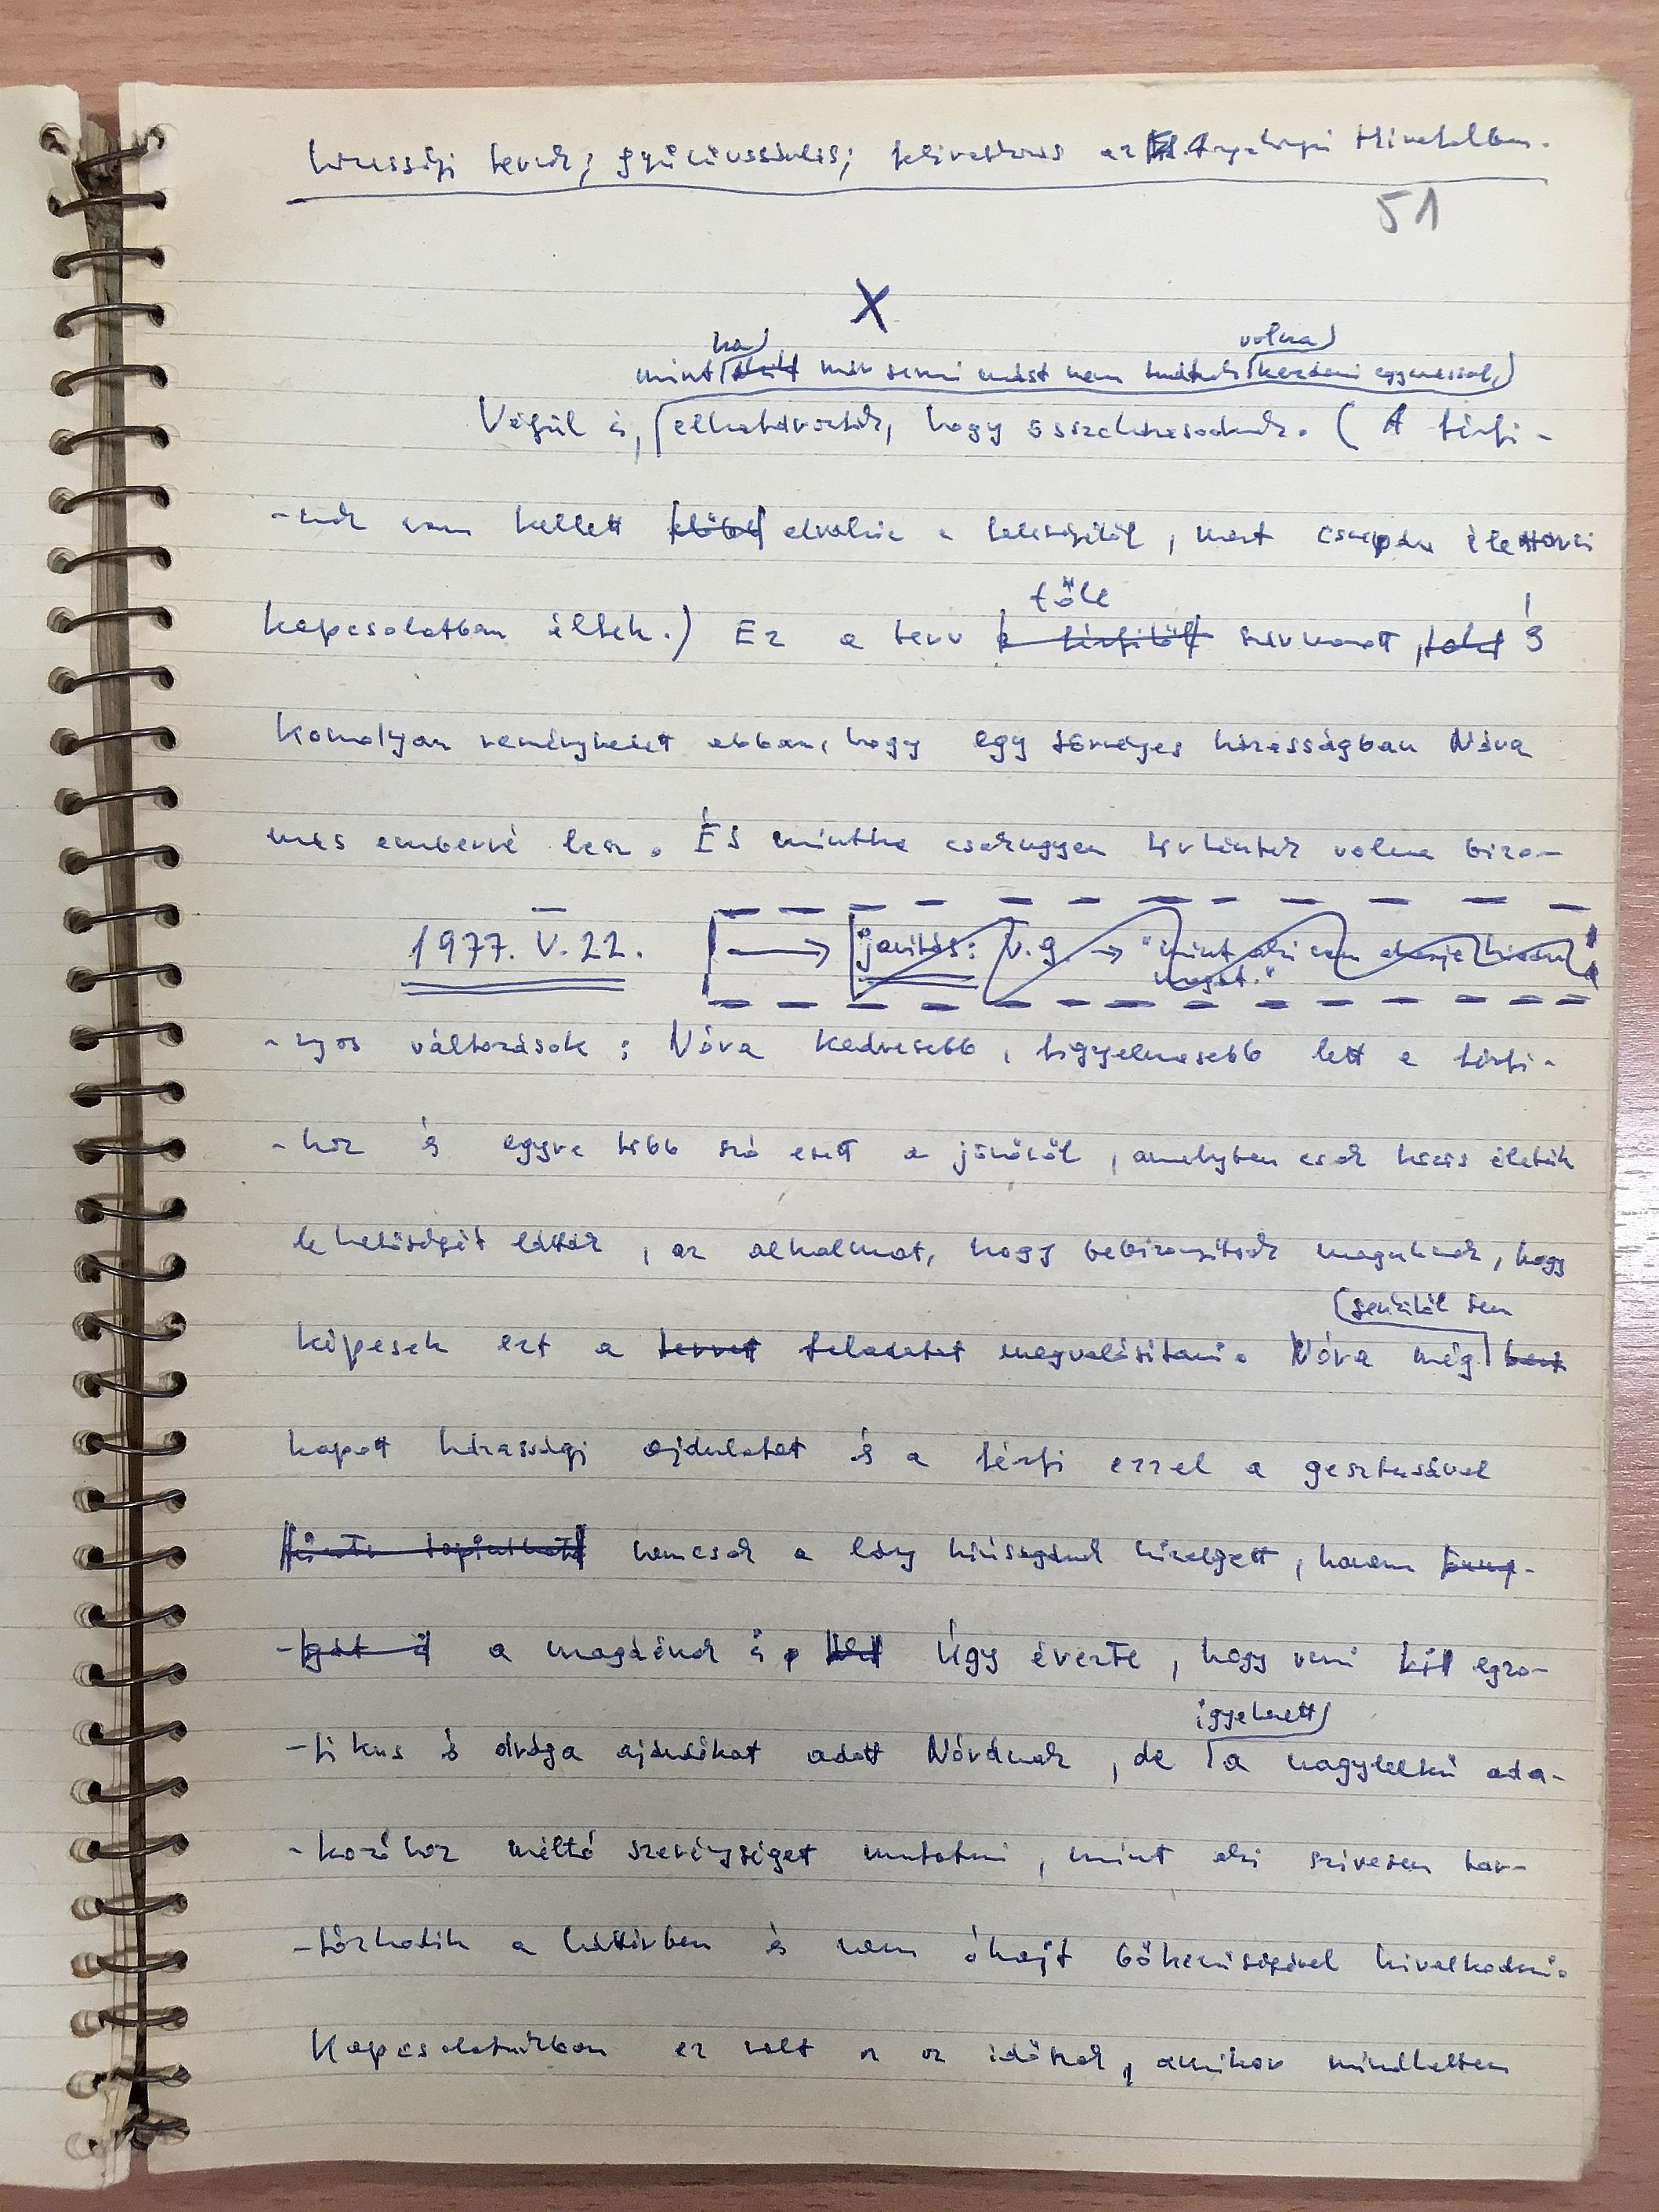 házassági tervek; gyűrűvásárlás; feliratkozás az Anyakönyvi Hivatalban.
51
X
ha volna
mint már semmi mást nem tudtak kezdeni egymással,
Végül is, elhatározták, hogy összeházasodnak. (A férfi-
-nak nem kellett előbb elválnia a feleségétől, mert csupán élettársi
tőle
kapcsolatban éltek.) Ez a terv a férfitől származott, s
komolyan reménykedett abban, hogy egy törvényes házasságban Nóra
más emberré lesz. És mintha csakugyan történtek volna bizo-
1977. V. 22. → javítás: V. 9. → "mint aki nem akarja
magát."
-nyos változások: Nóra kedvesebb, figyelmesebb lett a férfi-
-hoz és egyre több szó esett a jövőről, amelyben csak közös életük
lehetőségét látták, az alkalmat, hogy bebizonyítsák maguknak, hogy
(senkitől sem
képesek ezt a tervet feladatot megvalósítani. Nóra még
kapott házassági ajánlatot és a férfi ezzel a gesztusával
nemcsak a lány hiúságának hízelgett, hanem
a magáénak is. Úgy érezte, hogy neki egzo-
igyekezett
-tikus és drága ajándékot adott Nórának, de a nagylelkű ada-
-kozóhoz méltó szerénységet mutatni, mint aki szívesen tar-
-tózkodik a háttérben és nem óhajt bőkezűségével hivalkodni.
Kapcsolatukban ez volt az az időszak, amikor mindketten